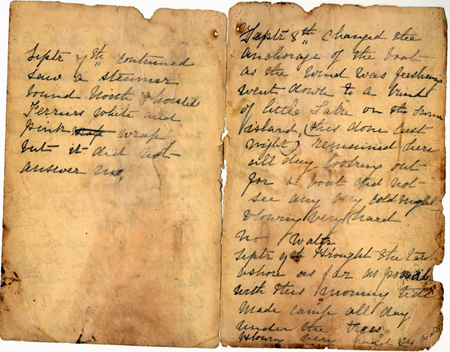 Septr 7th continued
Saw a steamer
bound North & hoisted
Ferriers white and
pink wrap
but it did not
answer us,
Septr 8th changed the
anchorage of the boat
as the wind was freshening
went down to a
of little Lake on the same
island, (this done last
night) Remained here
all day looking out
for a boat did not
see any very cold night
blowing very hard
No Water
Septr 9th Brought the
ashore as far as possible
with this morning tide
Made camp all day
under the trees
blowing very hard